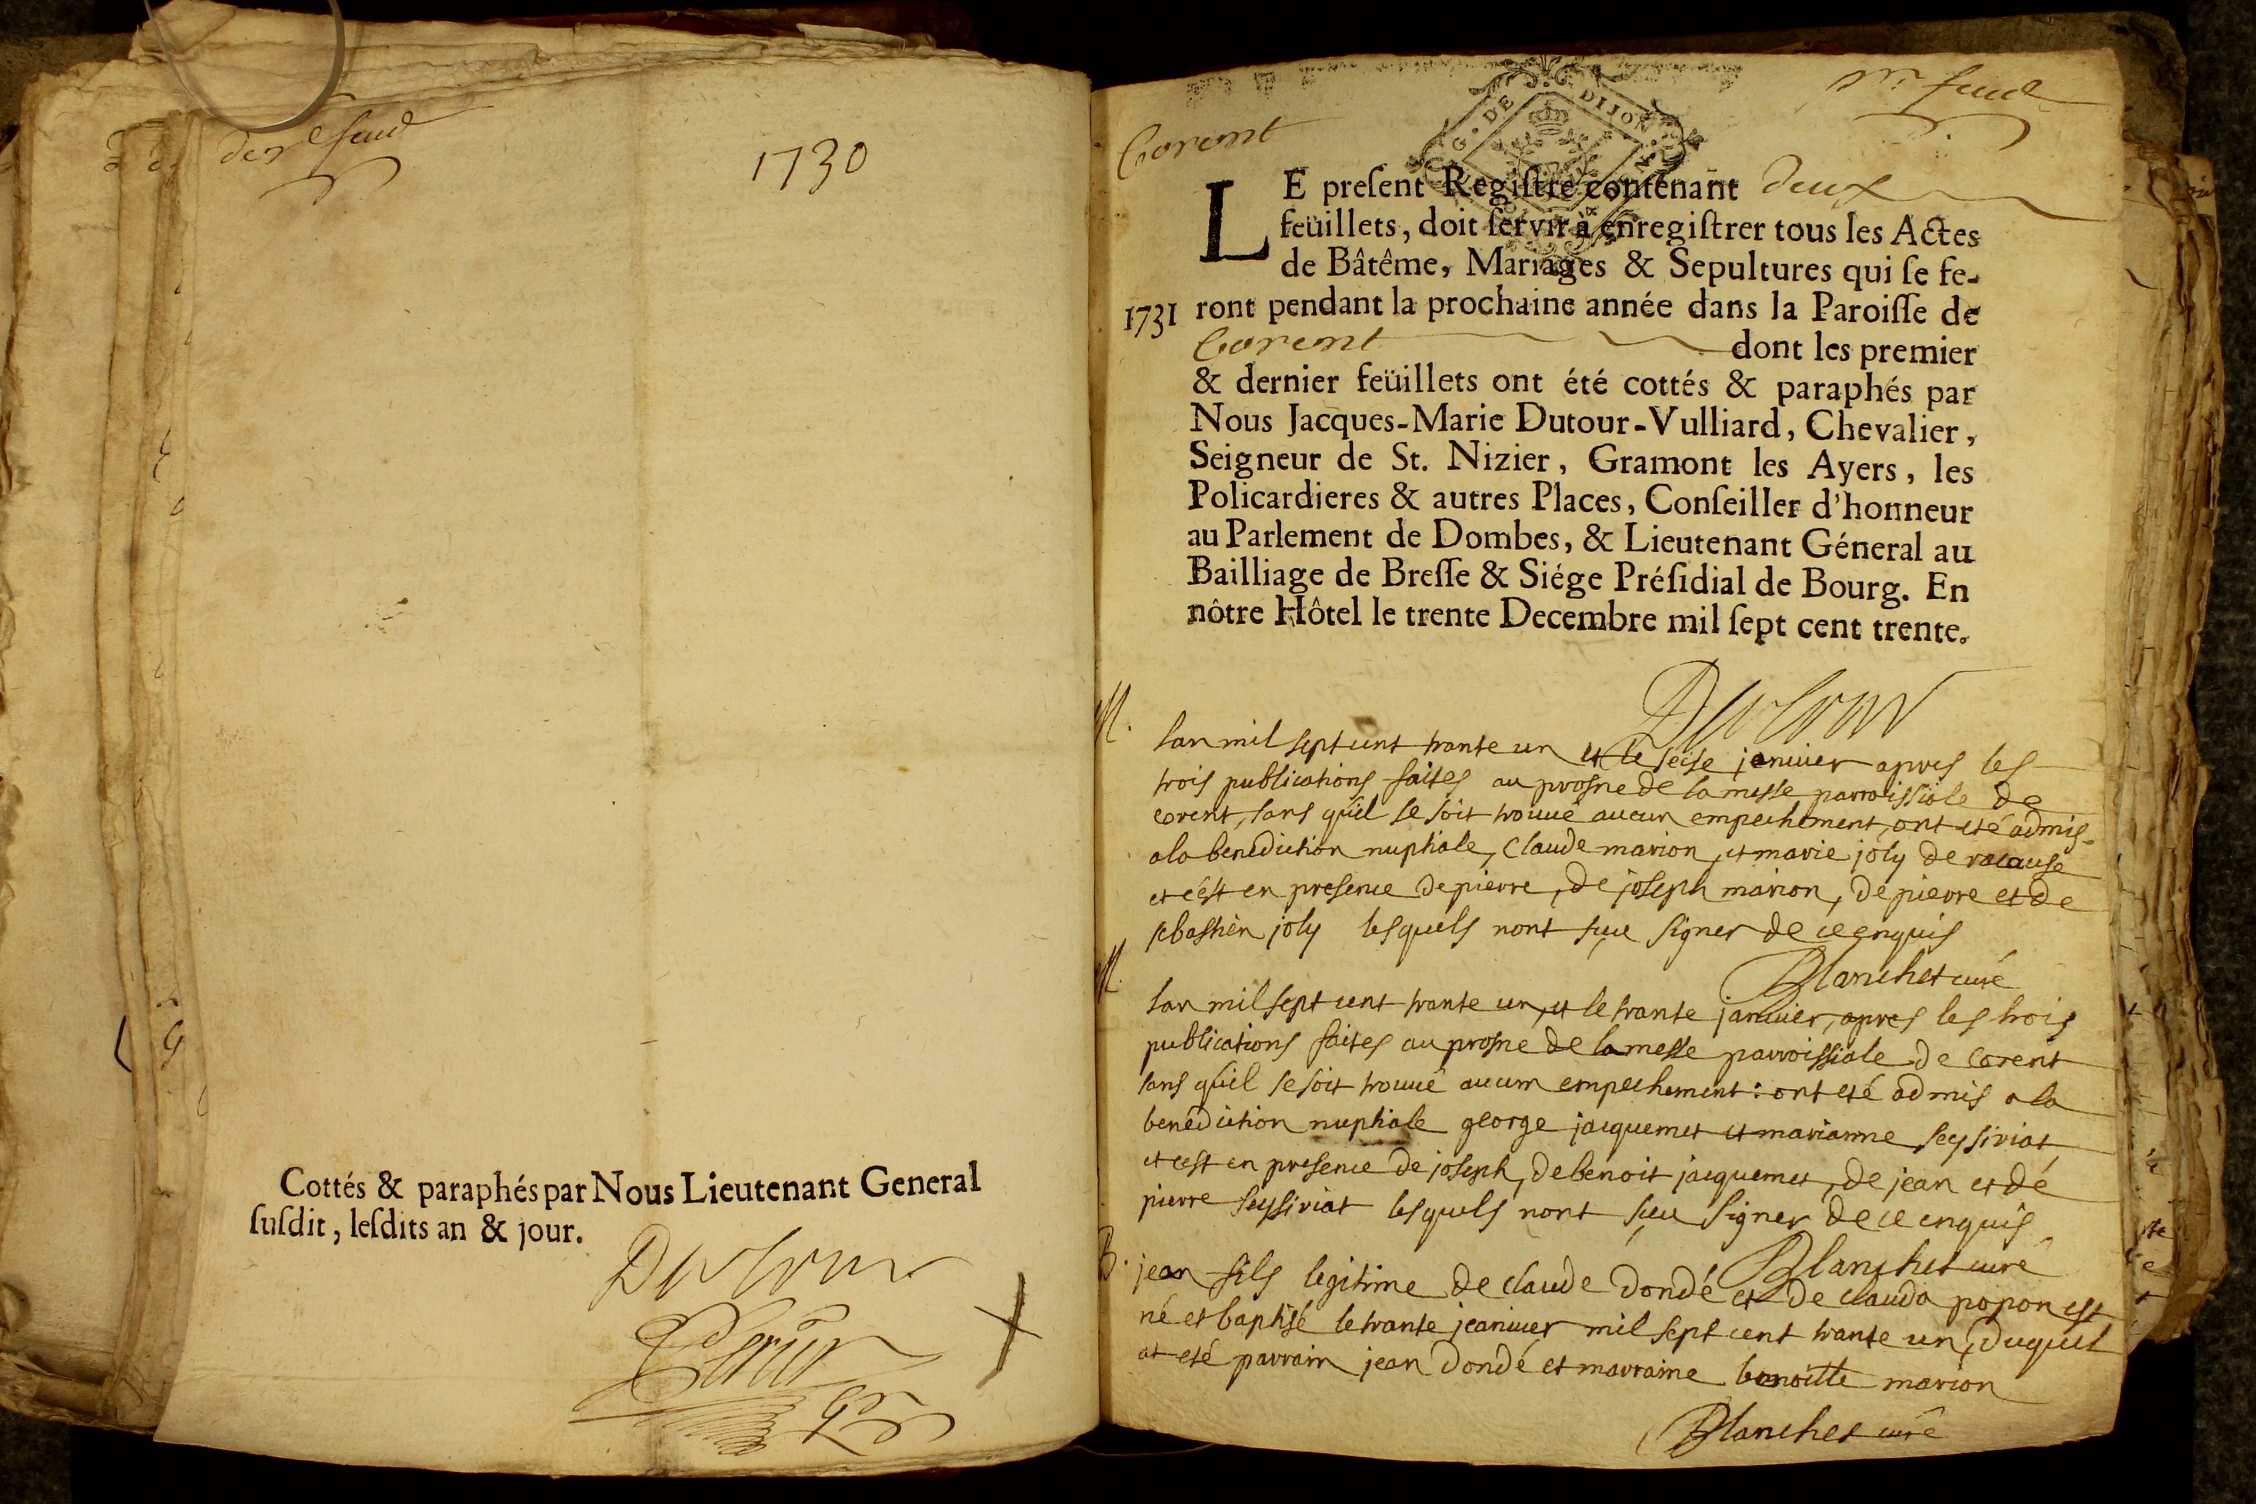 1730
Cottés & paraphés par Nous Lieutenant General
susdit, lesdits an & jour.
Dutour
G. DE DIJON
Corent
LE present Registre contenant deux
feüillets, doit servir à enregistrer tous les Actes
de Bâtême, Mariages & Sepultures qui se fe-
1731 ront pendant la prochaine année dans la Paroisse de
Corent dont les premier
& dernier feüillets ont été cottés & paraphés par
Nous Jacques-Marie Dutour-Vulliard, Chevalier,
Seigneur de St. Nizier, Gramont les Ayers, les
Policardieres & autres Places, Conseiller d'honneur
au Parlement de Dombes, & Lieutenant Géneral au
Bailliage de Bresse & Siége Présidial de Bourg. En
nôtre Hôtel le trente Decembre mil sept cent trente.
Dutour
M.
lan mil sept cent trante un et le seise janivier apres les
trois publications faites au prosne de la messe parroissiale de
corent, sans qu'il se soit trouué aucun empechement, ont eté admis
a la benediction nuptiale, Claude marion, et marie joly de racouse
et c'est en presence de pierre, de joseph marion, de pierre et de
sebastien joly lesquels n'ont sçeu signer de ce enquis
Blanchet curé
M.
lan mil sept cent trante un, et le trante janivier, apres les trois
publications faites au prosne de la messe parroissiale de Corent
sans qu'il se soit trouué aucun empechement : ont eté admis a la
benédiction nuptiale george jacquemet et marianne seyssiriat
et cest en presence de joseph, de benoit jacquemet, de jean et dé
pierre seyssiriat lesquels nont sçeu signer de ce enquis
Blanchet curé
B.
jean fils legitime de claude dondé et de clauda popon est
né et baptisé le trante jeanivier mil sept cent trante un, duquel
at eté parrain jean dondé et marraine benoitte marion
Blanchet curé